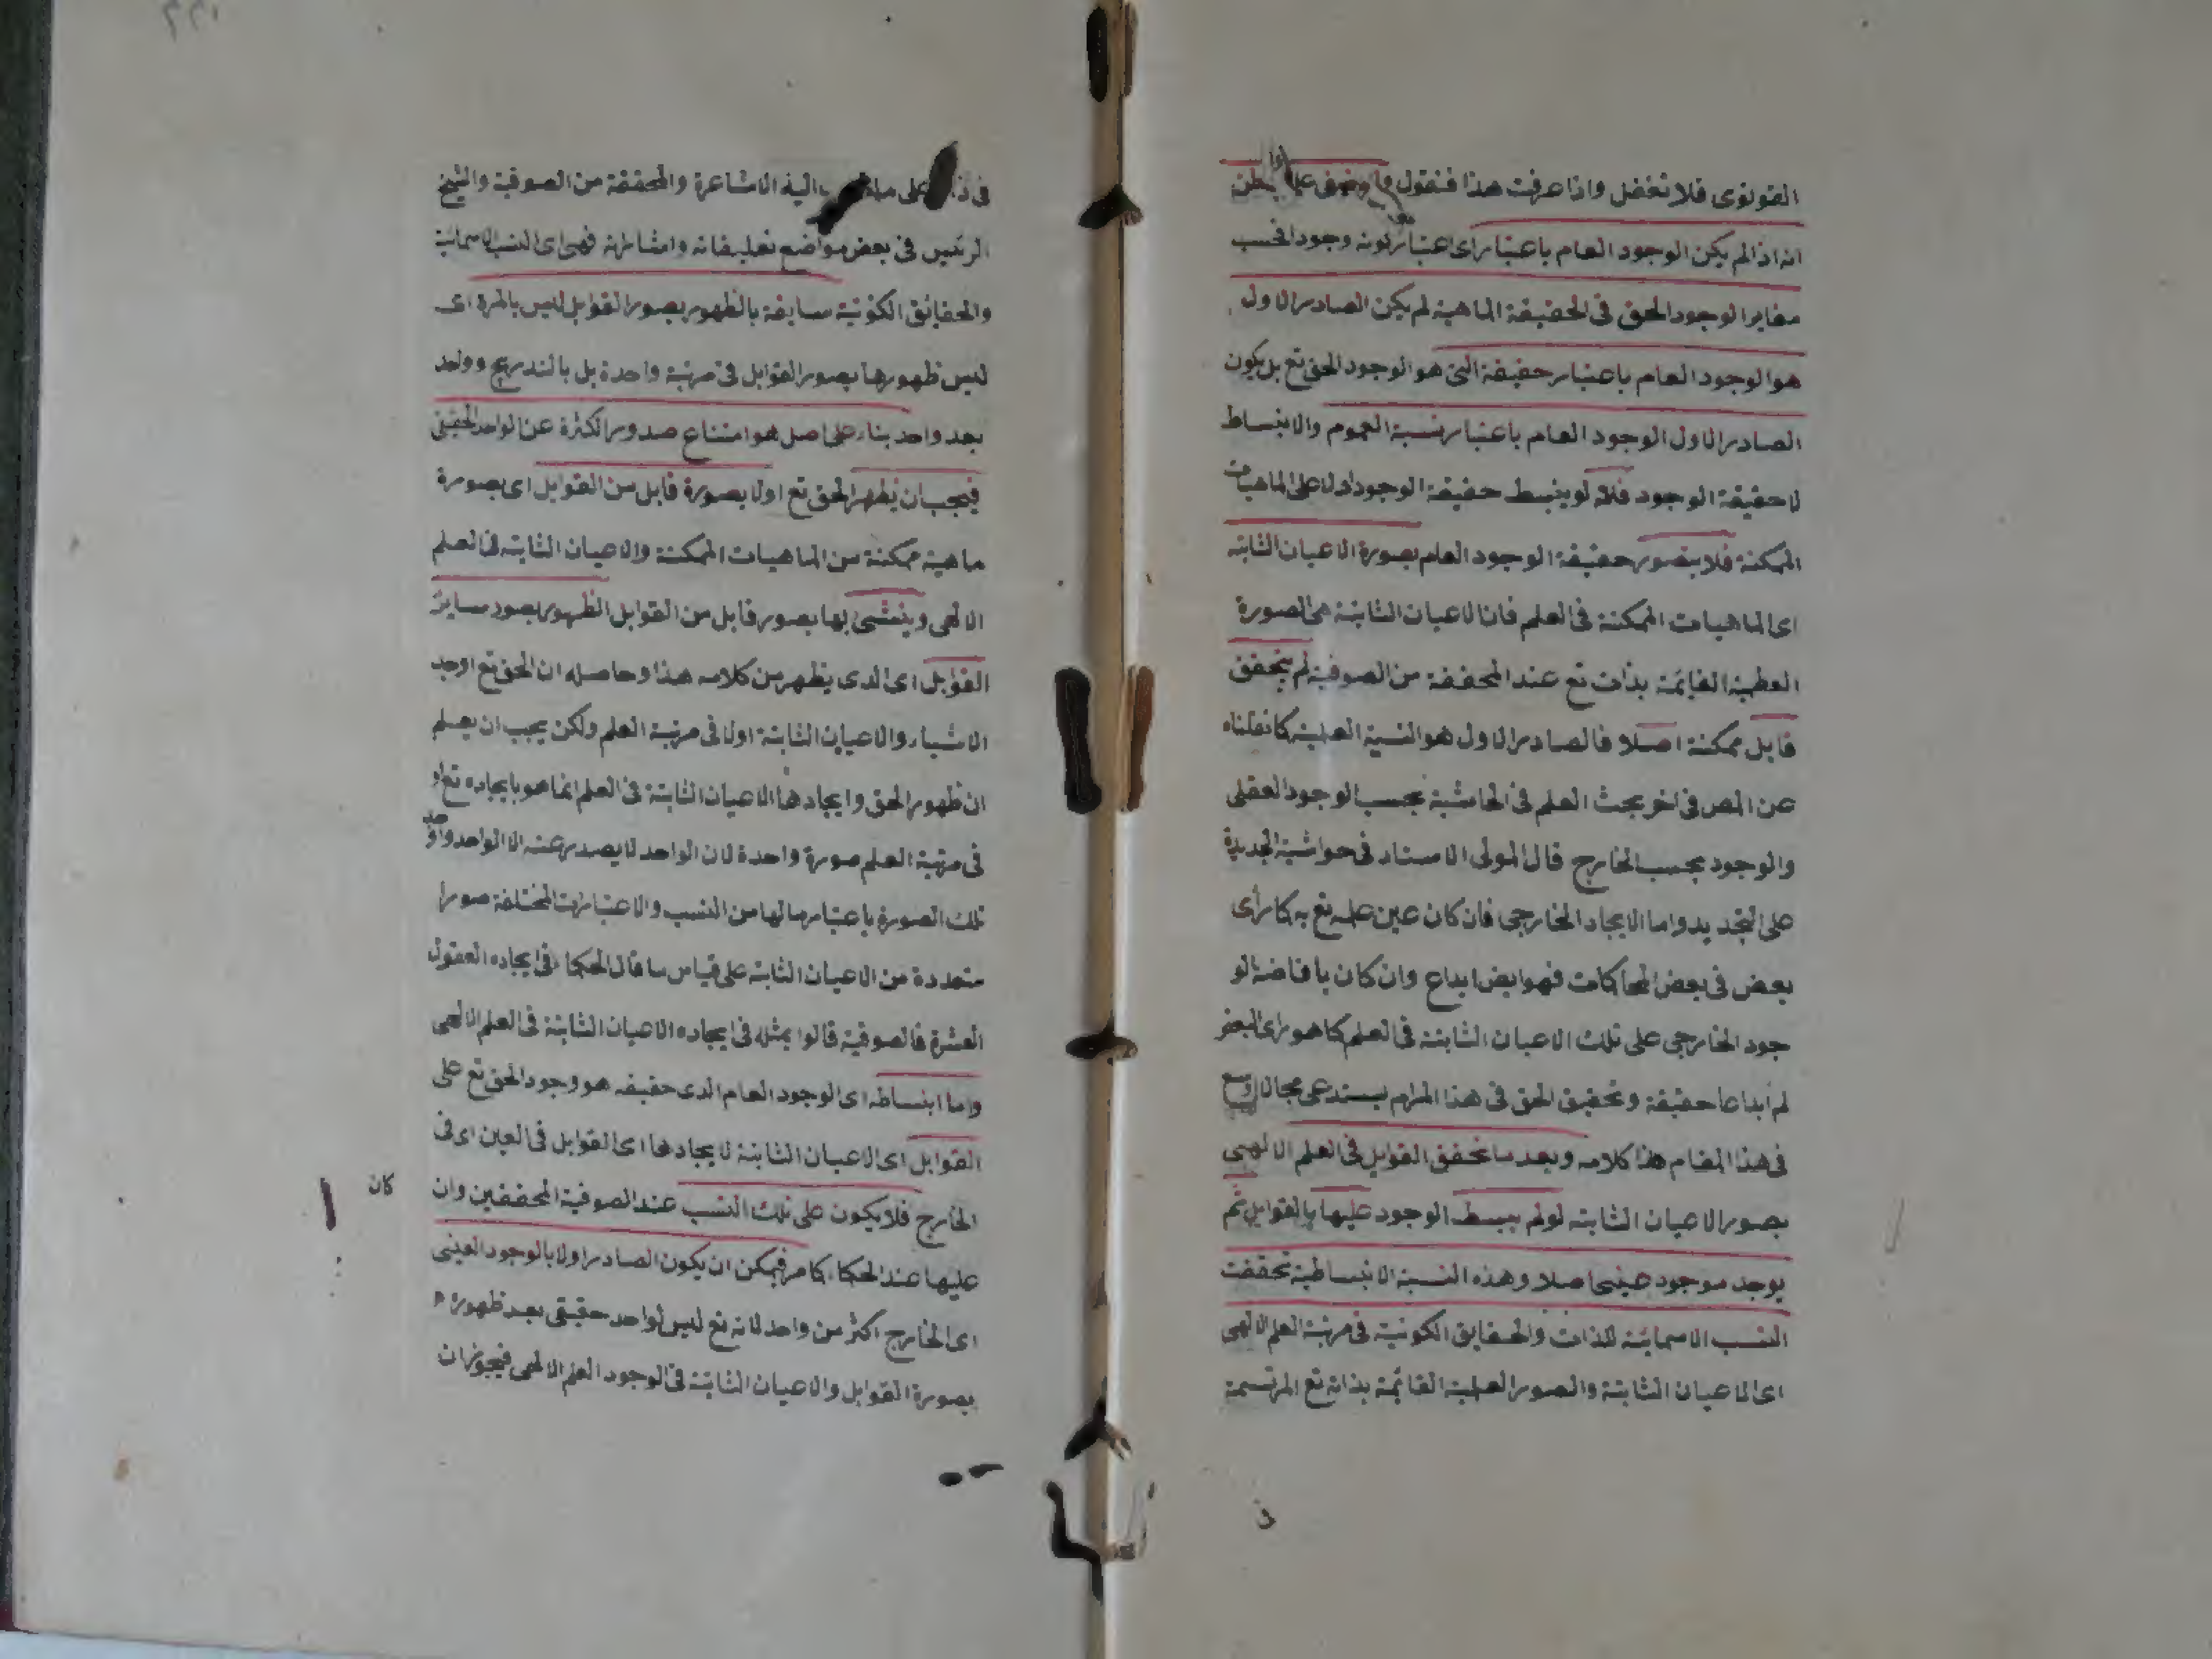 القونوى فلا تغفل واذا عرفت هذا فنقول
انه اذا لم يكن الوجود العام باعتبار اى اعتبار كونه وجودا فحسب
مغايرا لوجود الحق فى الحقيقة الماهية لم يكن الصادر الاول
هو الوجود العام باعتبار حقيقة التى هو الوجود الحق تع بل يكون
الصادر الاول الوجود العام باعتبار نسبة العموم والانبساط
لا حقيقة الوجود فلانه لو ينبسط حقيقة الوجود اولا على الماهيات
الممكنة فلا يتصور حقيقة الوجود العام بصورة الاعيان الثابتة
اى الماهيات الممكنة فى العلم فان الاعيان الثابتة هى الصورة
العلمية القائمة بذات تع عند المحققة من الصوفية لم يتحقق
قابل ممكنة اصلا فالصادر الاول هو النسبة العلمية كما نقلناه
عن المص فى اخر بحث العلم فى الحاشية بحسب الوجود العقلى
والوجود بحسب الخارج قال المولى الاستاد فى حواشية الجديدة
على التجديد واما الايجاد الخارجى فان كان عين علمه تع به كما رأى
بعض فى بعض المحاكات فهو ايض ابداع وان كان بافاضة الو
جود الخارجى على تلك الاعيان الثابتة فى العلم كما هو راى البعض
لم ابداعا حقيقة وتحقيق الحق فى هذا المرام يستدعى مجالا اوسع
فى هذا المقام هذا كلامه وبعد ما تحقق القوابل فى العلم الالهى
بصور الاعيان الثابتة لو لم يبسط الوجود عليها بالقوابل ثم
يوجد موجود عينى اصلا وهذه النسبة الانبساطية تحققت
النسب الاسمائية للذات والحقايق الكونية فى مرتبة العلم الالهى
اى الاعيان الثابتة والصور العلمية القائمة بذاته تع المرتسمة
فى
على اليه الاشاعرة والمحققة من الصوفية والشيخ
الرئيس فى بعض مواضع تعليقاته واشاراته فهى اى النسب الاسمائية
والحقائق الكونية سابقة بالظهور بصور القوابل ليس بالمرة اى
ليس ظهورها بصور القوابل فى مرتبة واحدة بل بالتدريج وواحد
بعد واحد بناء على اصل هو امتناع صدور الكثرة عن الواحد الحقيقى
فيجب ان يظهر الحق تع اولا بصورة قابل من القوابل اى بصورة
ماهية ممكنة من الماهيات الممكنة والاعيان الثابتة فى العلم
الالهى وينتشى بها بصور قابل من القوابل الظهور بصور سائر
القوابل اى الذى يظهر من كلامه هذا وحاصله ان الحق تع اوجد
الاشياء والاعيان الثابتة اولا فى مرتبة العلم ولكن يجب ان يعلم
ان ظهور الحق وايجادها الاعيان الثابتة فى العلم انما هو بايجاده تع اولا
فى مرتبة العلم صورة واحدة لان الواحد لا يصدر عنه الا الواحد واوجد
تلك الصورة باعتبار مالها من النسب والاعتبارات المختلفة صورا
متعددة من الاعيان الثابتة على قياس ما قال الحكماء فى ايجاده العقول
العشرة فالصوفية قالوا بمثله فى ايجاده الاعيان الثابتة فى العلم الالهى
واما انبساطه اى الوجود العام الذى حقيقه هو وجود الحق تع على
القوابل اى الاعيان الثابتة لايجادها اى القوابل فى العين اى فى
الخارج فلا يكون على تلك النسب عند الصوفية المحققين وان
كان
عليها عند الحكماء كما مر فيمكن ان يكون الصادر اولا بالوجود العينى
اى الخارج اكثر من واحد لانه تع ليس لواحد حقيقى بعد ظهوره
بصورة القوابل والاعيان الثابتة فى الوجود العلم الالهى فيجوز ان